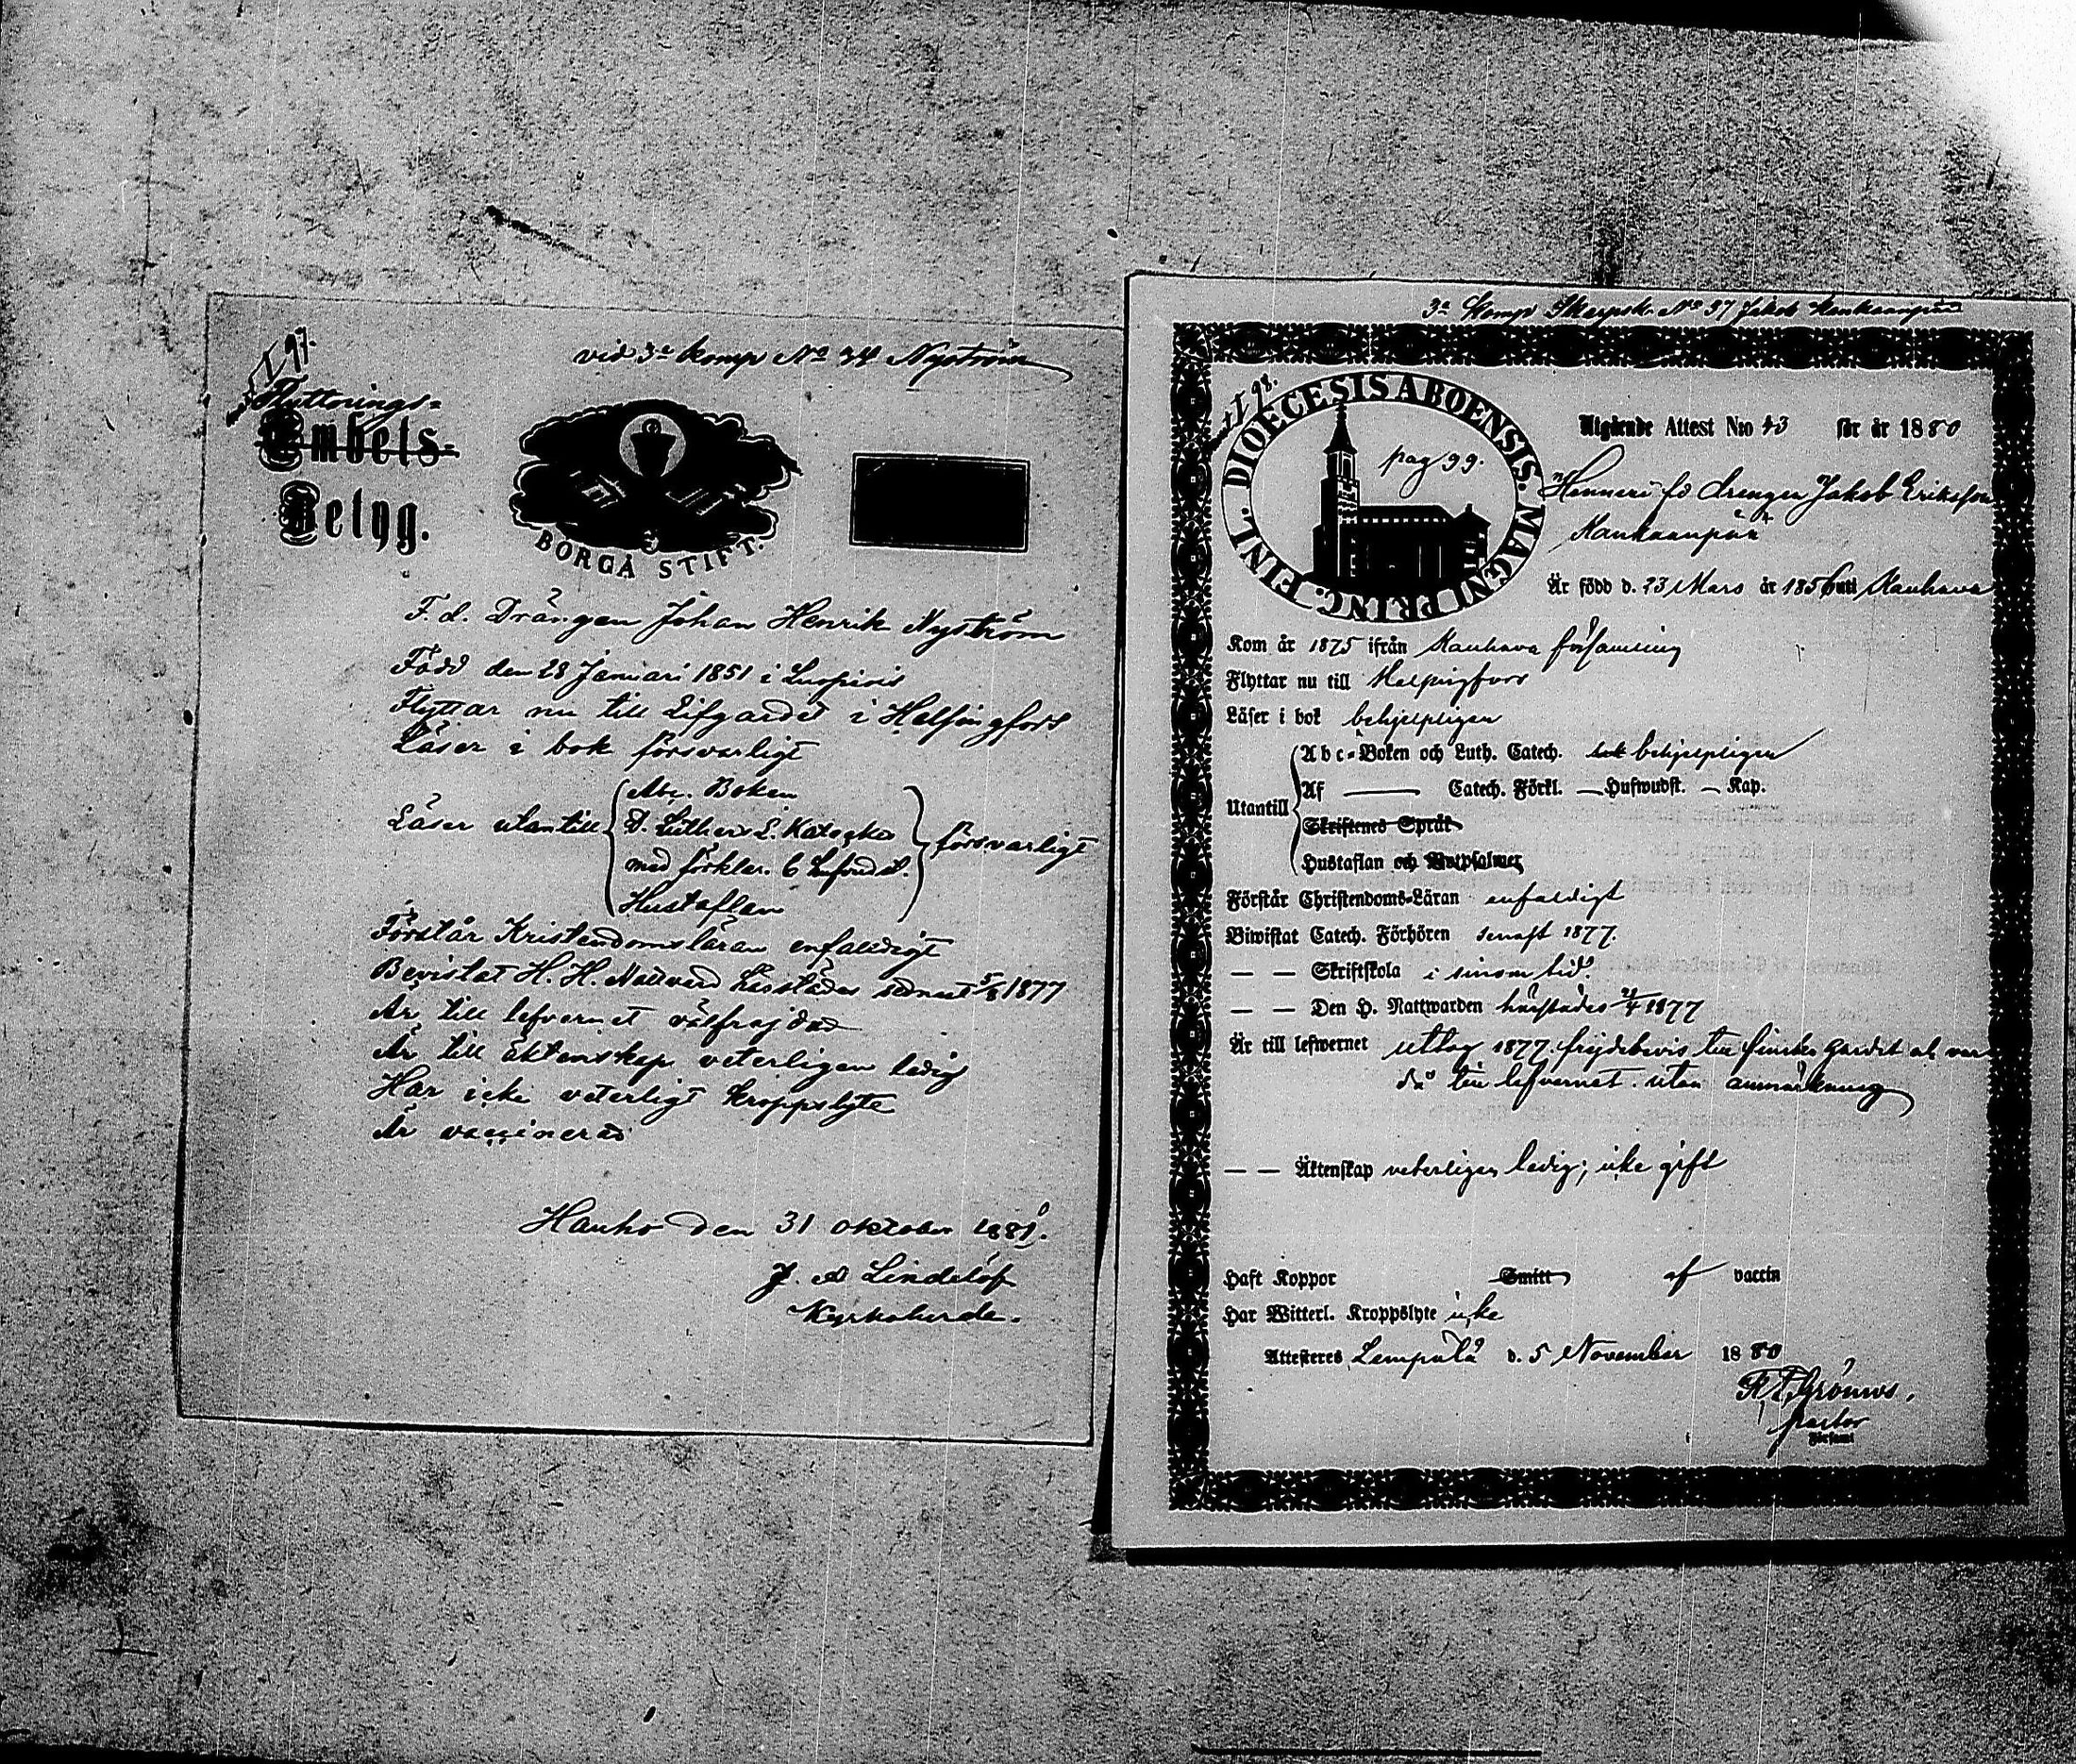 vid 3e komp No 34 Nyström
Flyttnings-
Embets-
Betyg.
BORGÅ STIFT.
F. d. Drängen Johan Henrik Nyström
Född den 28 Januari 1851 i Luopiois
Flyttar nu till Lifgardet i Helsingfors
Läser i bok försvarligt
Läser utantill
Abc. Boken
D. Luthers L. Kateches
med förklar. 6 hufvudst.
Hustaflan
försvarligt
Förstår Kristendomsläran enfaldigt
Bevistat H. H. Nattvard härstädes sednast 5/8 1877
Är till lefvernet välfrejdad
Är till äktenskap veterligen ledig
Har icke veterligt kroppslyte
Är vaccinerad
Hauho den 31 oktober 1880.
J. A Lindelöf
Kyrkoherde.
3e Komp Skarpsk. No 37 Jakob Kankaanpää
DIOECESIS ABOENSIS. MAGNI PRINC. FINL.
pag 99.
Utgående Attest N:o 43 för år 1880
Drengen Jakob Eriksson
Kankaanpää
Är född d. 23 Mars år 1856 uti Kauhava
Kom år 1875 ifrån Kauhava församling
Flyttar nu till Helsingfors
Läser i bok behjelpligen
Utantill
Abc-Boken och Luth. Catech. behjelpligen
Af — Catech. Förkl. — Hufwudst. — Kap.
Skriftenes Språk
Hustaflan och Botpsalmer
Förstår Christendoms-Läran enfaldigt
Biwistat Catech. Förhören senast 1877.
— — Skriftskola i sinom tid.
— — Den H. Nattwarden härstädes 21/4 1877
Är till lefwernet uttog 1877 frejdebevis till finska Gardet och var
då till lefvernet utan anmärkning
— — Äktenskap veterligen ledig; icke gift
Haft Koppor Smitt af vaccin
Har Witterl. Kroppslyte icke
Attesteras Lempälä d. 5 November 1880
pastor